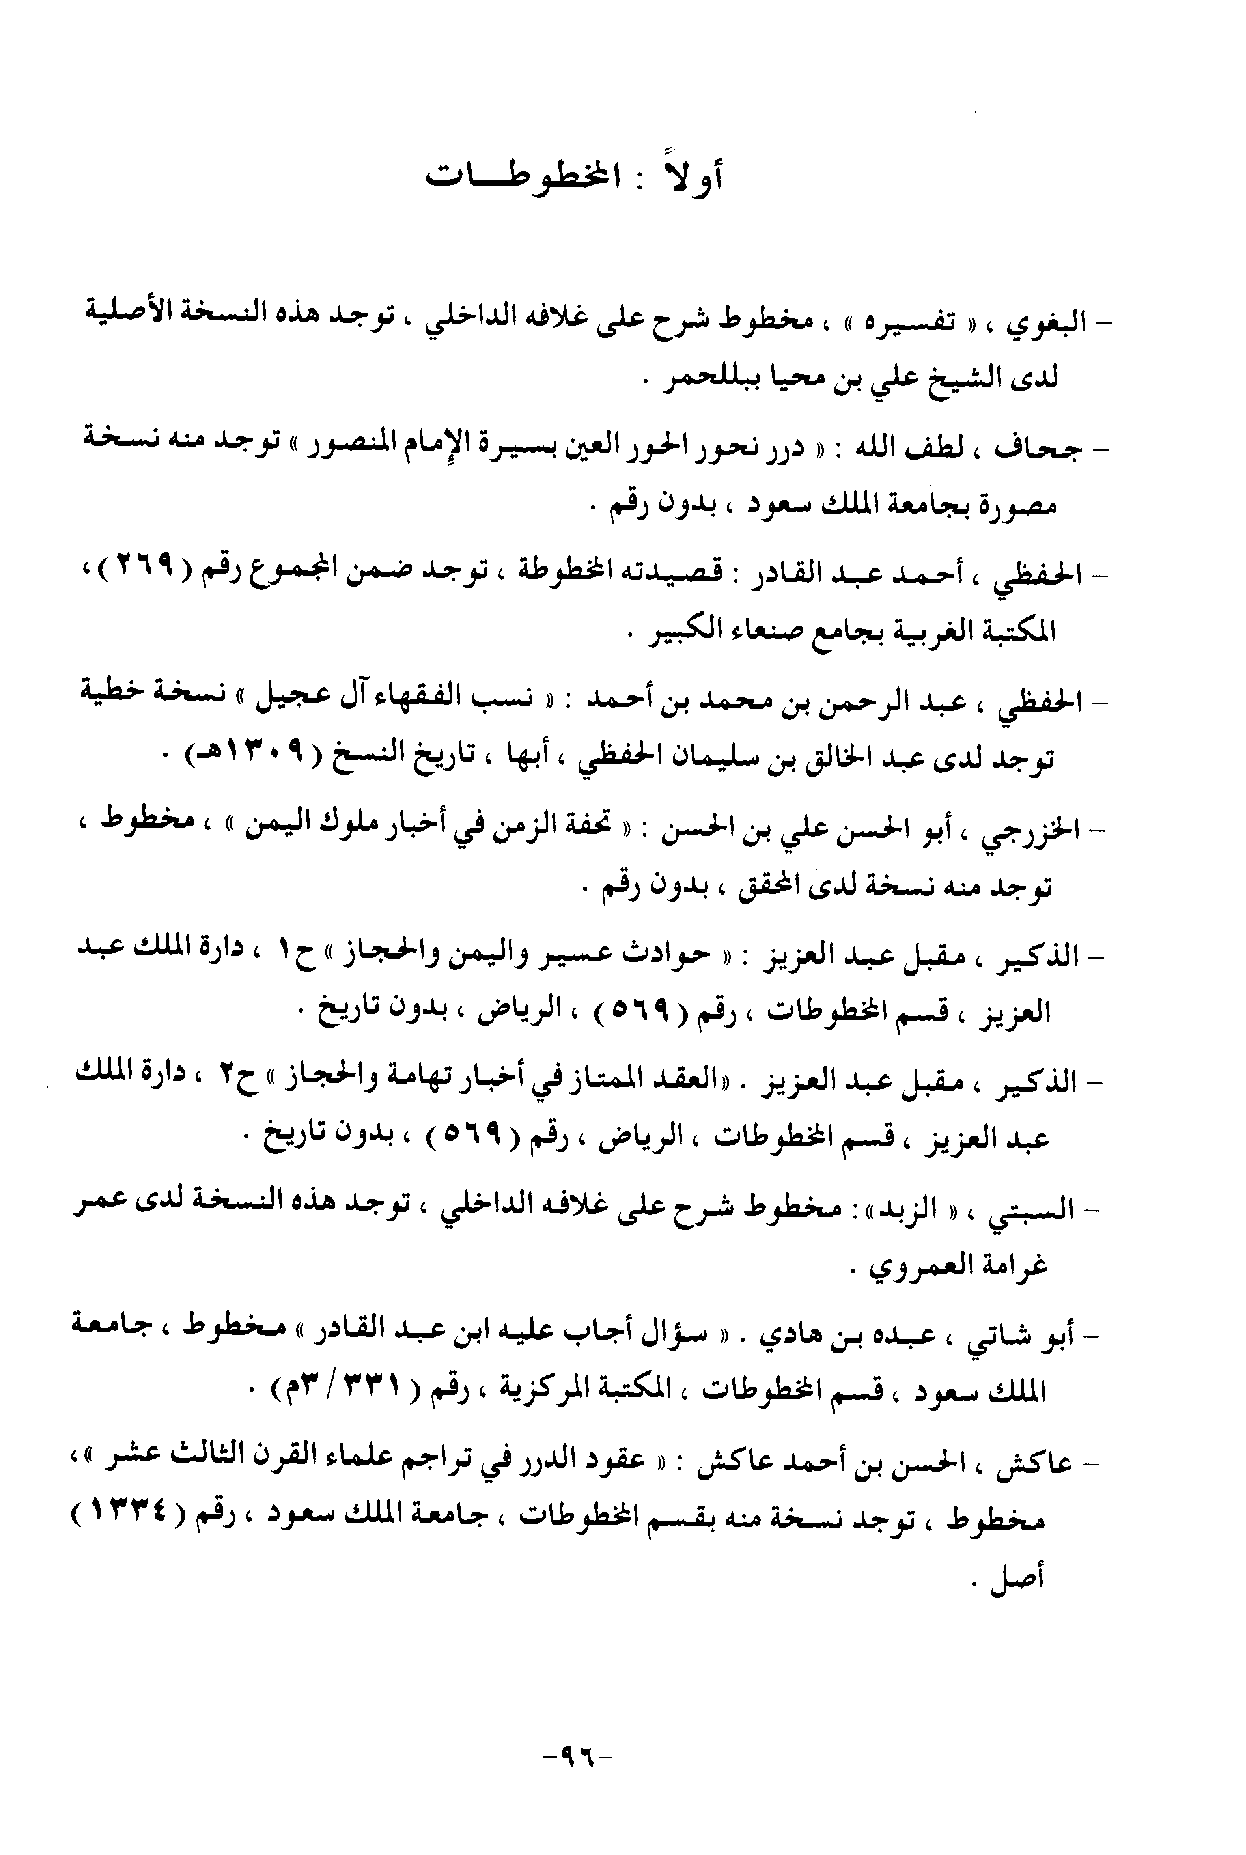 أولاً : المخطوطات
- البغوي ، « تفسيره » ، مخطوط شرح على غلافه الداخلي ، توجد هذه النسخة الأصلية
لدى الشيخ علي بن محيا ببللحمر .
- جحاف ، لطف الله : « درر نحور الحور العين بسيرة الإمام المنصور » توجد منه نسخة
مصورة بجامعة الملك سعود ، بدون رقم .
- الحفظي ، أحمد عبد القادر : قصيدته المخطوطة ، توجد ضمن المجموع رقم (٢٦٩)،
المكتبة الغربية بجامع صنعاء الكبير .
- الحفظي ، عبد الرحمن بن محمد بن أحمد : « نسب الفقهاء آل عجيل » نسخة خطية
توجد لدى عبد الخالق بن سليمان الحفظي ، أبها ، تاريخ النسخ (١٣٠٩هـ) .
- الخزرجي ، أبو الحسن علي بن الحسن : « تحفة الزمن في أخبار ملوك اليمن » ، مخطوط ،
توجد منه نسخة لدى المحقق ، بدون رقم .
- الذكير ، مقبل عبد العزيز : « حوادث عسير واليمن والحجاز » ح١ ، دارة الملك عبد
العزيز ، قسم المخطوطات ، رقم (٥٦٩) ، الرياض ، بدون تاريخ .
- الذكير ، مقبل عبد العزيز . «العقد الممتاز في أخبار تهامة والحجاز » ح٢ ، دارة الملك
عبد العزيز ، قسم المخطوطات ، الرياض ، رقم (٥٦٩) ، بدون تاريخ .
- السبتي ، « الزبد» : مخطوط شرح على غلافه الداخلي ، توجد هذه النسخة لدى عمر
غرامة العمروي .
- أبو شاتي ، عبده بن هادي . « سؤال أجاب عليه ابن عبد القادر » مخطوط ، جامعة
الملك سعود ، قسم المخطوطات ، المكتبة المركزية ، رقم (٣٣١ / ٣م) .
- عاكش ، الحسن بن أحمد عاكش : « عقود الدرر في تراجم علماء القرن الثالث عشر » ،
مخطوط ، توجد نسخة منه بقسم المخطوطات ، جامعة الملك سعود ، رقم (١٣٣٤)
أصل .
-٩٦-